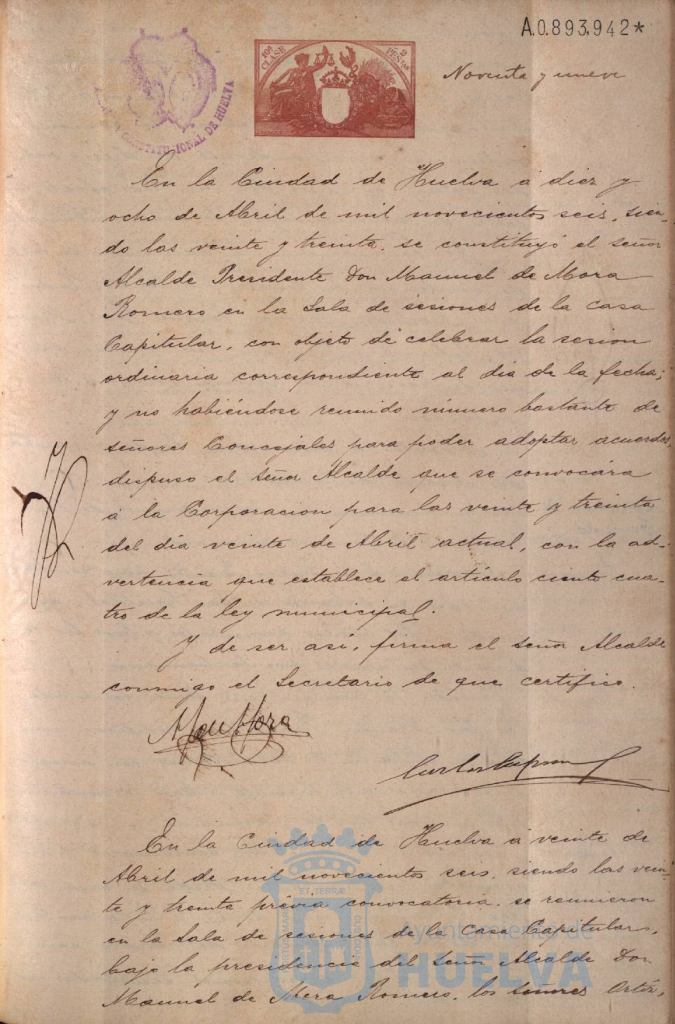 A.0.893.942*
10ª CLASE
2 PESETAS
Noventa y nueve
CONSTITUCIONAL DE HUELVA
En la Ciudad de Huelva á diez y
ocho de Abril de mil novecientos seis, sien-
do las veinte y treinta, se constituyó el señor
Alcalde Presidente Don Manuel de Mora
Romero en la Sala de sesiones de la casa
Capitular, con objeto de celebrar la sesion
ordinaria correspondiente al dia de la fecha;
y no habiéndose reunido número bastante de
señores Concejales para poder adoptar acuerdos,
dispuso el señor Alcalde que se convocára
á la Corporacion para las veinte y treinta
del dia veinte de Abril actual, con la ad-
vertencia que establece el artículo ciento cua-
tro de la ley municipal.
Y de ser así, firma el señor Alcalde
conmigo el Secretario de que certifico.
M de Mora
Carlos
En la Ciudad de Huelva á veinte de
Abril de mil novecientos seis, siendo las vein-
te y treinta prévia convocatoria, se reunieron
en la Sala de sesiones de la Casa Capitular,
bajo la presidencia del Señor Alcalde Don
Manuel de Mora Romero, los señores Ortiz,
Ayuntamiento de
HUELVA